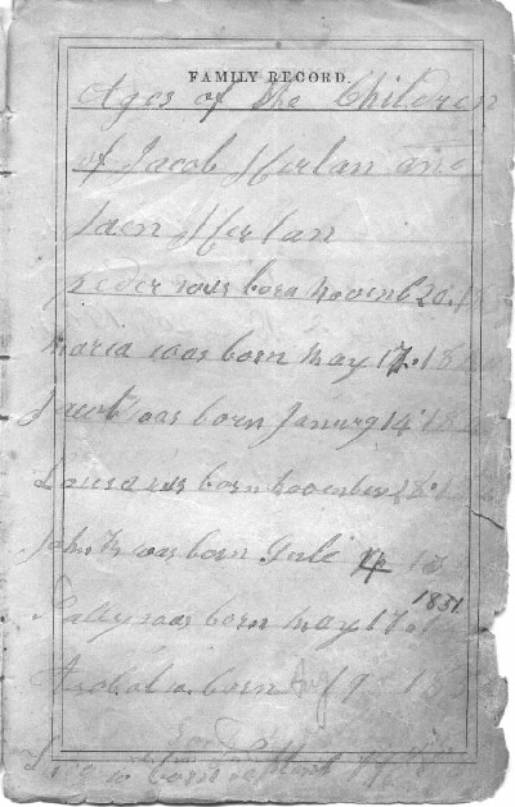 FAMILY RECORD.
Ages of the Children
of Jacob Herlan and
Jaen Herlan
peder was born novemb 20. 1
maria was born may 17. 18
Jacob was born Janurg 14 18
Lausa was born november 28. 1
John was born Jule 4 18
1851
was born may 17. 1
born Aug 19 18
born March